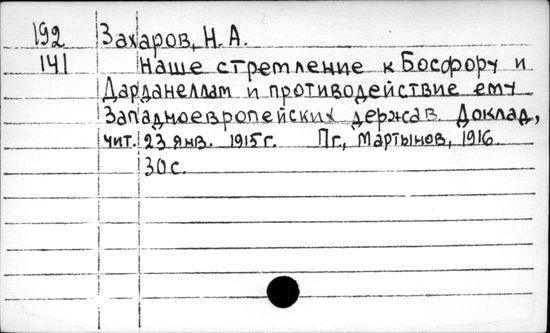 192 Захаров, Н. А.
141 Наше стремление к Босфору и
Дарданеллам и противодействие ему
Западноевропейских держав. Доклад,
чит. 23 янв. 1915 г. Пг., Мартынов, 1916.
30 с.